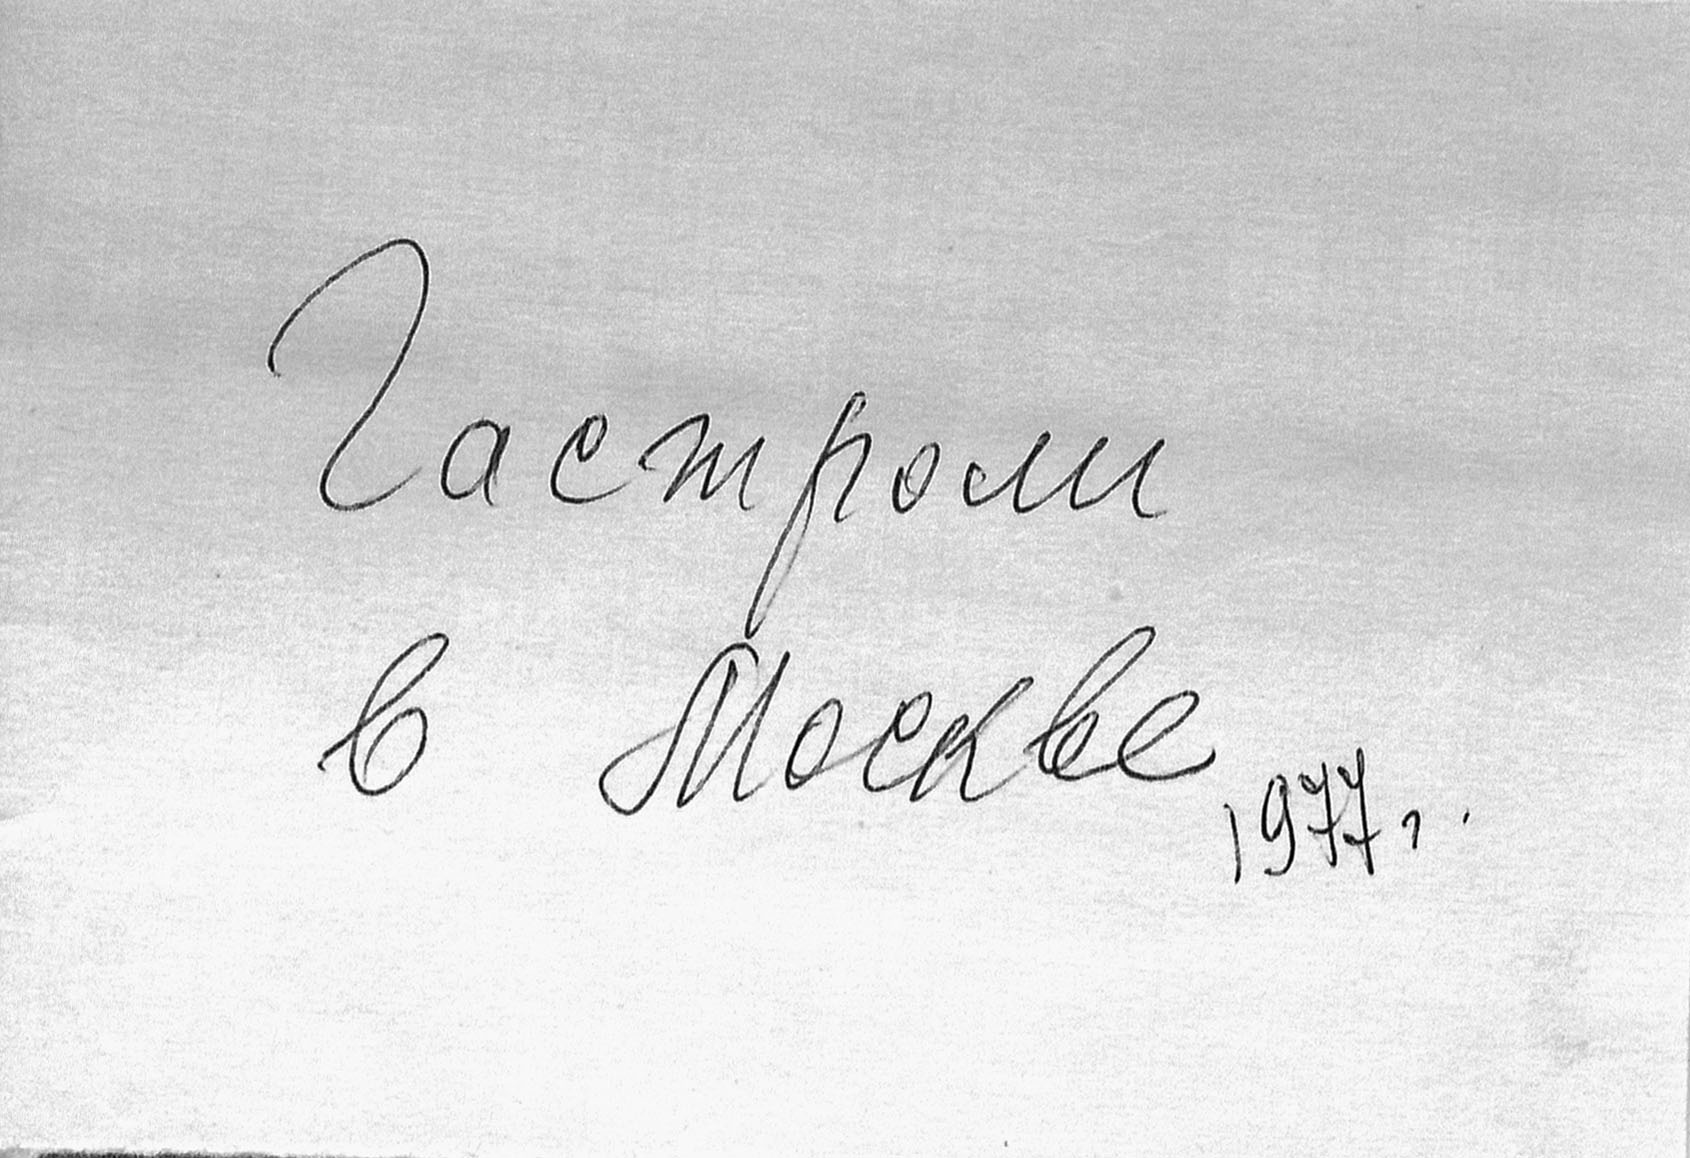 Гастроли
в Москве
1977 г.